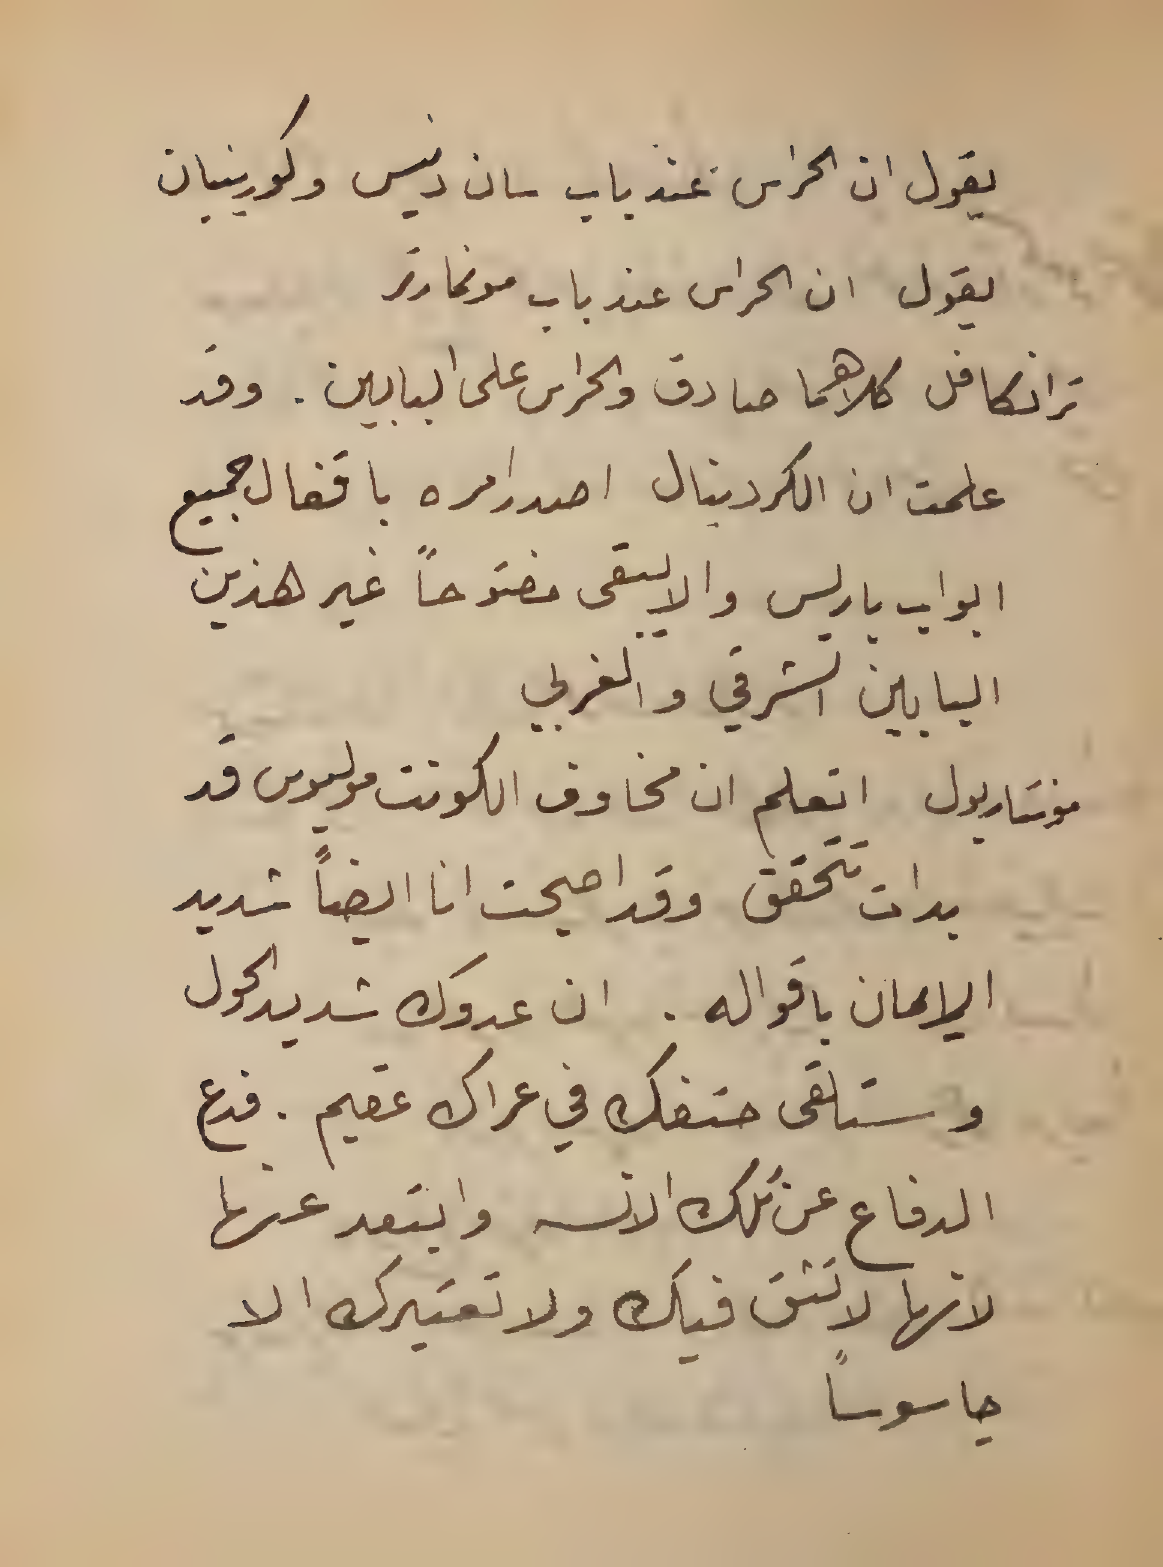 يقول ان الحراس عند باب سان دنيس وكورينيان
يقول ان الحراس عند باب مونمارتر
ترانكافل كلاهما صادق والحراس على البابين . وقد
علمت ان الكردينال اصدر امره باقفال جميع
ابواب باريس والا يبقى مفتوحاً غير هذين
البابين الشرقي والغربي
مونتاريول اتعلم ان مخاوف الكونت موليوس قد
بدات تتحقق وقد اصبحت انا ايضاً شديد
الايمان باقواله . ان عدوك شديد الحول
وستلقى حتفك في عراك عقيم . فدع
الدفاع عن تلك الانسه وابتعد عنها
لانها لا تثق فيك ولا تعتبرك الا
جاسوساً